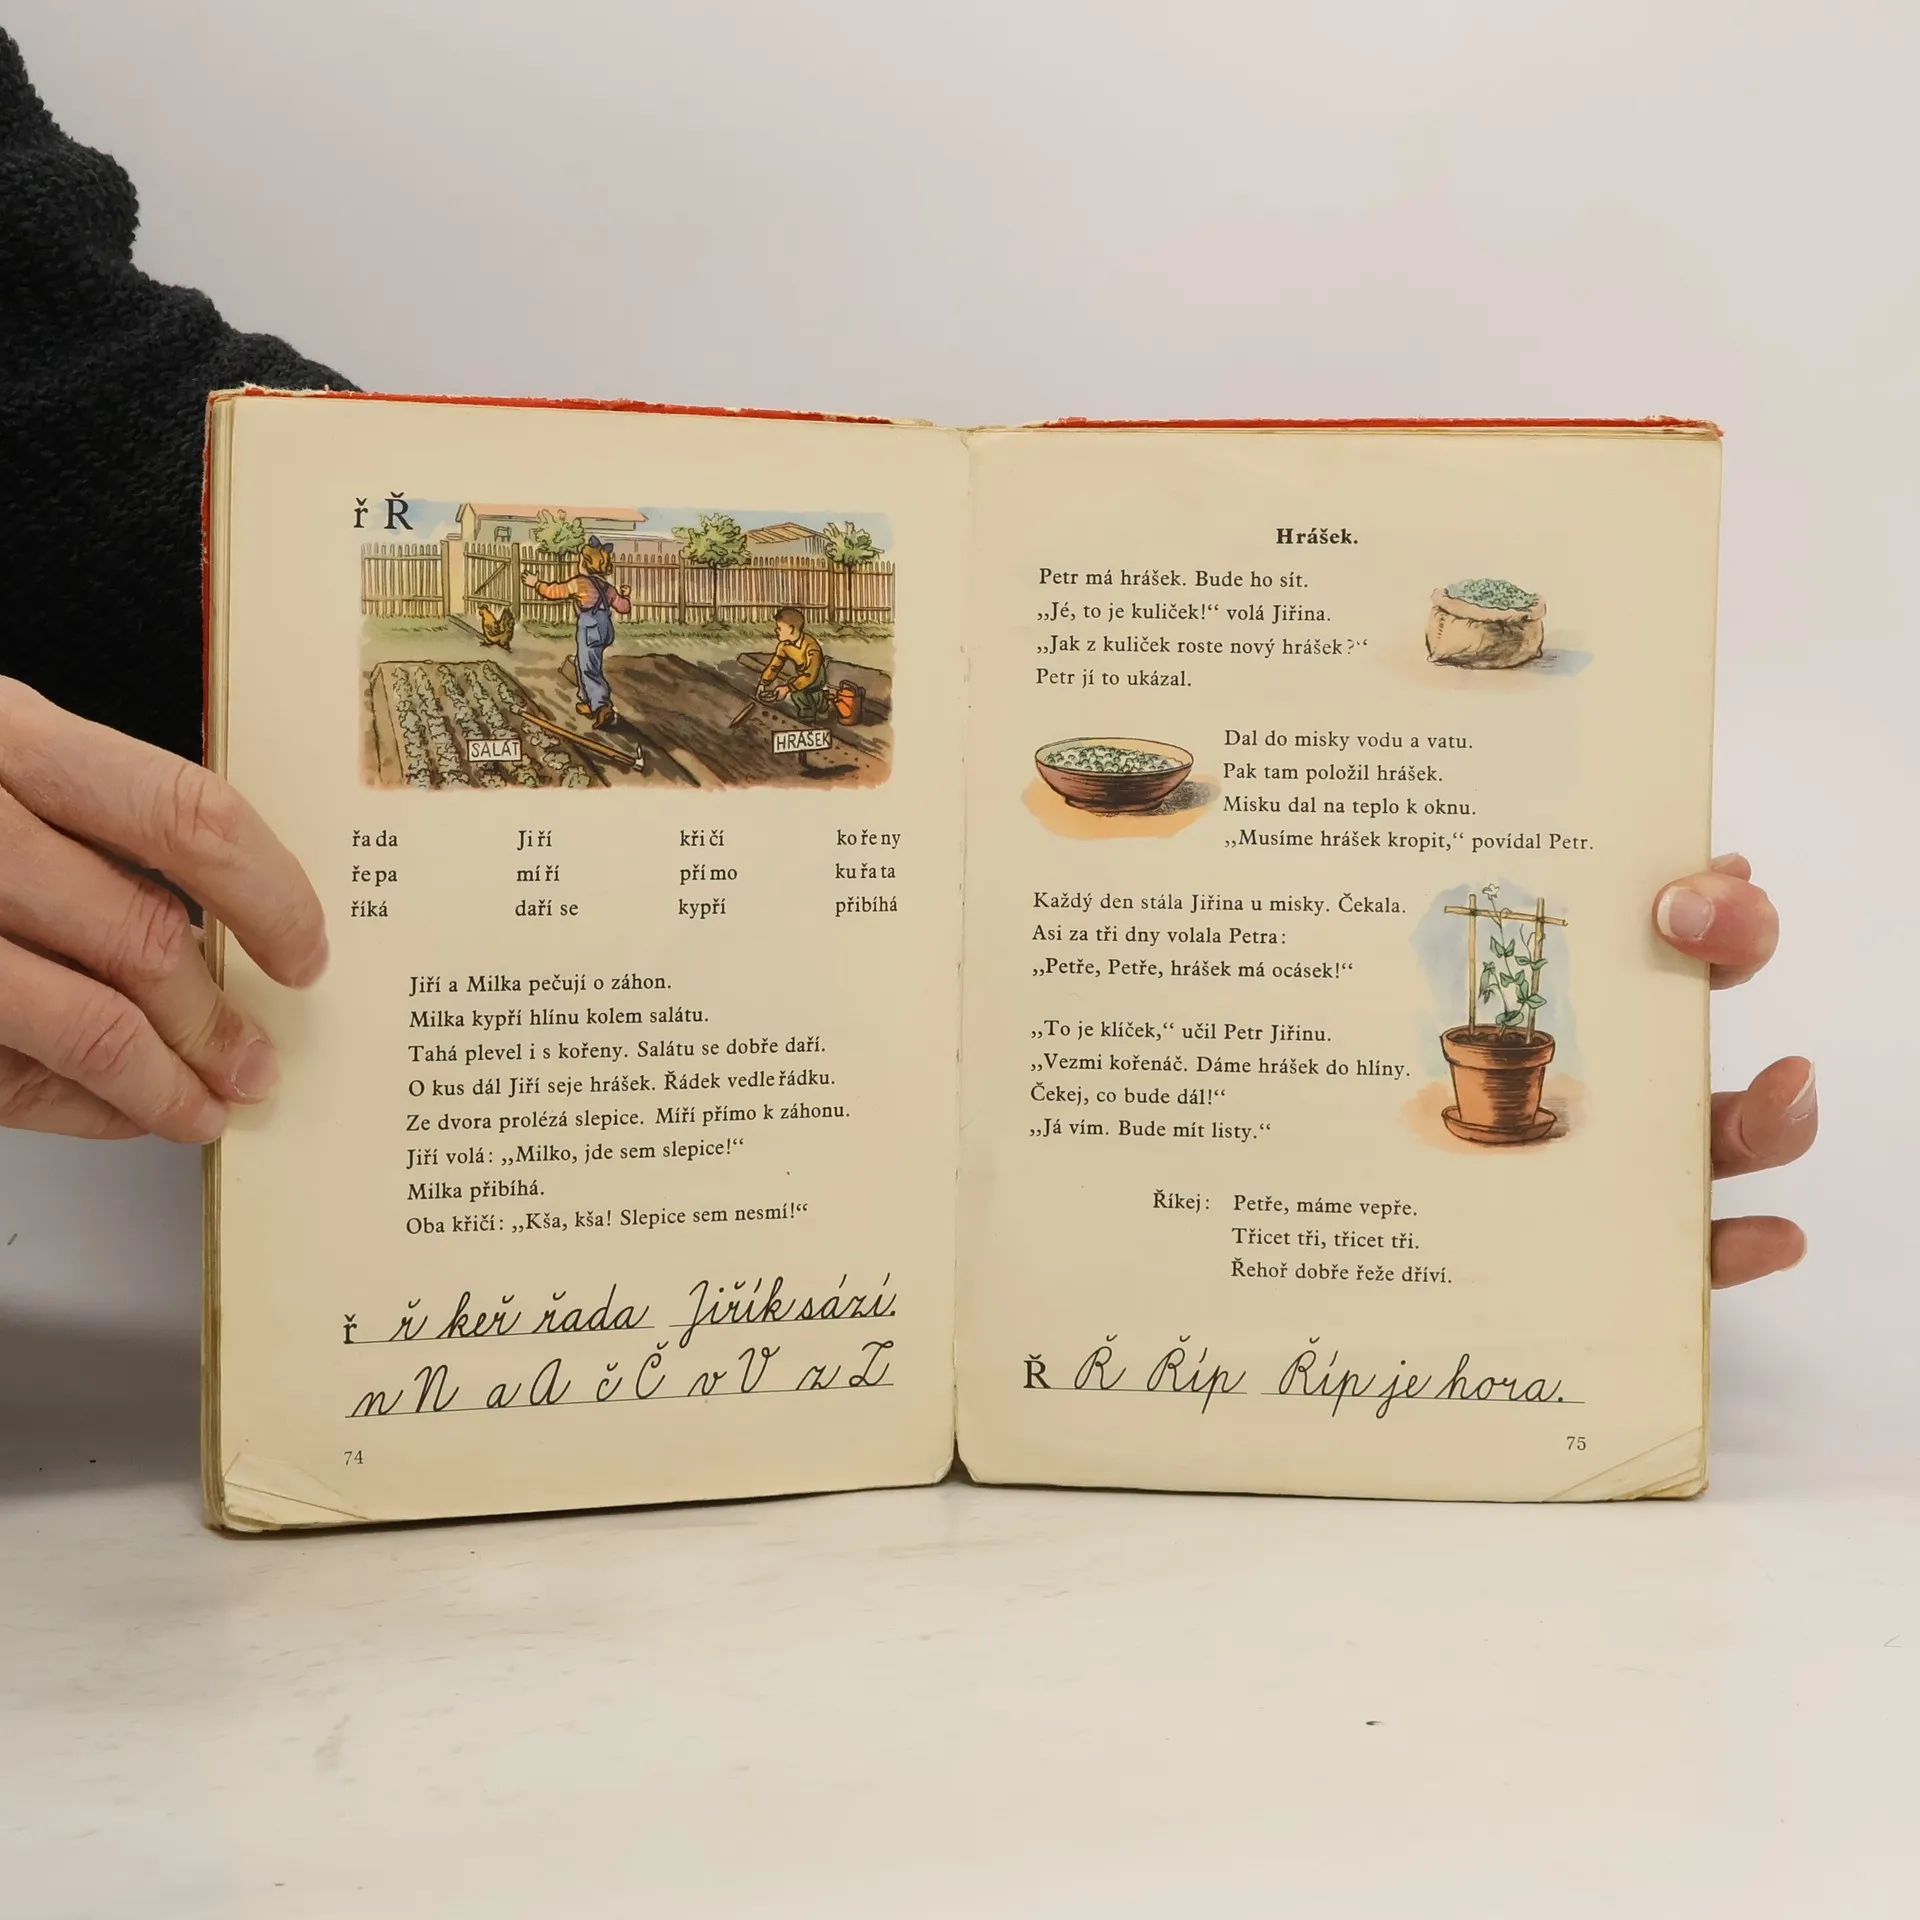 ř Ř
SALÁT
HRÁŠEK
řa da Ji ří kři čí ko ře ny
ře pa mí ří pří mo ku řa ta
říká daří se kypří přibíhá
Jiří a Milka pečují o záhon.
Milka kypří hlínu kolem salátu.
Tahá plevel i s kořeny. Salátu se dobře daří.
O kus dál Jiří seje hrášek. Řádek vedle řádku.
Ze dvora prolézá slepice. Míří přímo k záhonu.
Jiří volá: „Milko, jde sem slepice!“
Milka přibíhá.
Oba křičí: „Kša, kša! Slepice sem nesmí!“
ř ř keř řada Jiřík sází.
n N a A č Č v V z Z
74
Hrášek.
Petr má hrášek. Bude ho sít.
„Jé, to je kuliček!“ volá Jiřina.
„Jak z kuliček roste nový hrášek?“
Petr jí to ukázal.
Dal do misky vodu a vatu.
Pak tam položil hrášek.
Misku dal na teplo k oknu.
„Musíme hrášek kropit,“ povídal Petr.
Každý den stála Jiřina u misky. Čekala.
Asi za tři dny volala Petra:
„Petře, Petře, hrášek má ocásek!“
„To je klíček,“ učil Petr Jiřinu.
„Vezmi kořenáč. Dáme hrášek do hlíny.
Čekej, co bude dál!“
„Já vím. Bude mít listy.“
Říkej: Petře, máme vepře.
Třicet tři, třicet tři.
Řehoř dobře řeže dříví.
Ř Ř Říp Říp je hora.
75